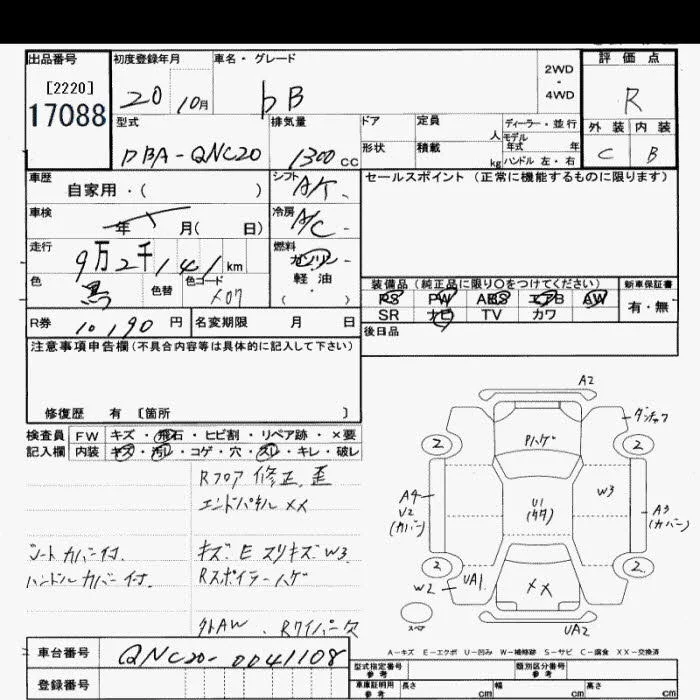 出品番号 初度登録年月 車名・グレード 2WD・4WD 評価点
[2220] 17088 20 10月 bB R
型式 排気量 ドア 定員 人 ディーラー・並行 外装 内装
DBA-QNC20 1300cc 形状 積載 kg モデル年式 年 ハンドル 左・右 C B
車歴 自家用・( ) シフト A/T セールスポイント(正常に機能するものに限ります)
車検 年 月( 日) 冷房 A/C
走行 9万2千141km 燃料 ガソリン・軽油・( )
色 黒 色替 色コード X07 装備品(純正品に限り〇をつけてください) 新車保証書
PS PW ABS エアB AW 有・無
SR ナビ TV カワ
R券 10,190円 名変期限 月 日 後日品
注意事項申告欄(不具合内容等は具体的に記入して下さい)
修復歴 有 [箇所 ]
検査員 FW キズ・飛石・ヒビ割・リペア跡・×要
記入欄 内装 キズ・汚レ・コゲ・穴・スレ・キレ・破レ
Rフロア 修正、歪
エンドパネル XX
シートカバー付. キズ E スリキズ W3
ハンドルカバー付. Rスポイラーハゲ
外AW、Rワイパー欠
A2
2 Pハゲ 2
A4 U2 (カバー) U1 W3 A3 (カバー)
2 2
W2 UA1 XX
スペア UA2
A-キズ E-エクボ U-凹み W-補修跡 S-サビ C-腐食 XX-交換済
車台番号 QNC20-0041108 型式指定番号 参考 類別区分番号 参考
登録番号 車庫証明用 参考 長さ cm 幅 cm 高さ cm